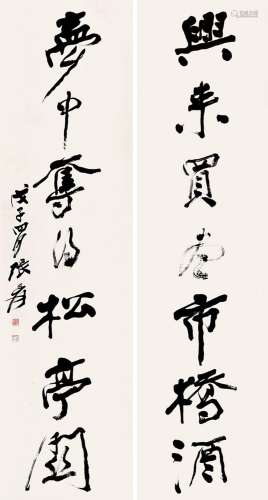 興來買盡市橋酒
夢中奪得松亭關
戊子四月張爰